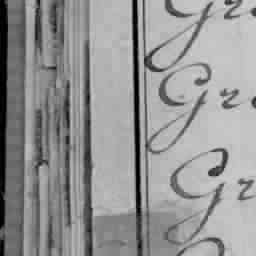 Gr
Gr
Gr